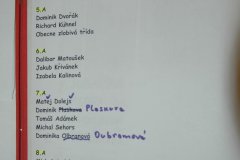 5.A
Dominik Dvořák
Richard Kühnel
Obecne zlobivá třída
6.A
Dalibor Matoušek
Jakub Křivánek
Izabela Kalinová
7.A
Matěj Dalejš
Dominik Plaskura Plaskura
Tomáš Adámek
Michal Sehors
Dominika Olbranová Oubramová
8.A